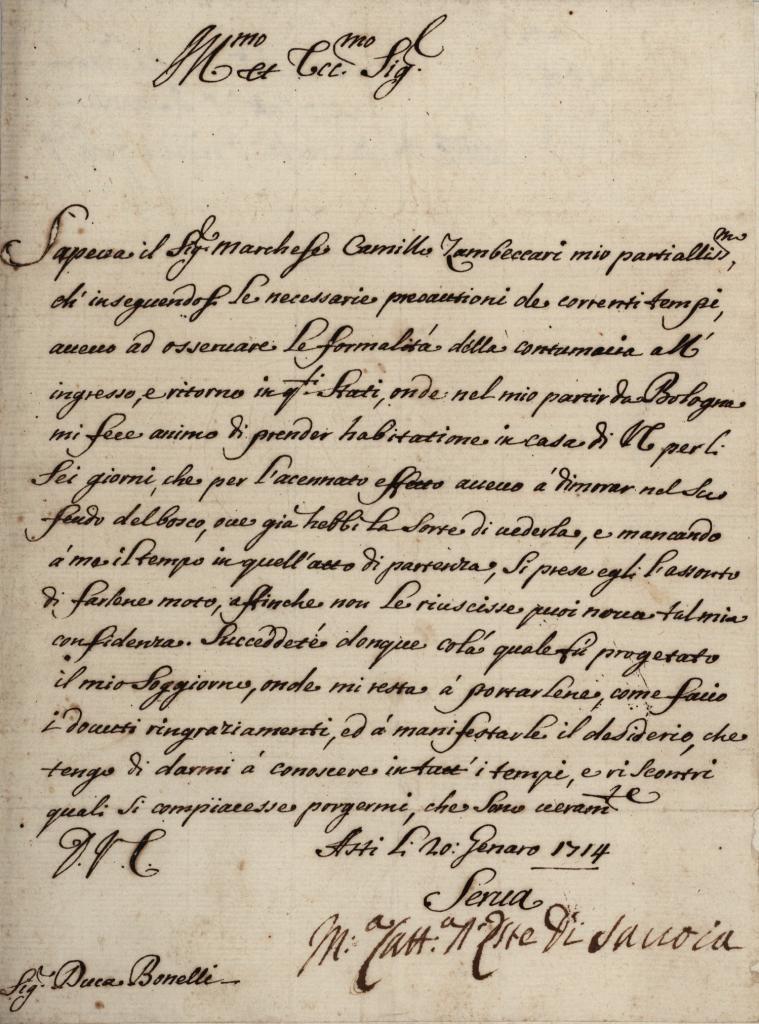 Ill.mo et Ecc.mo Sig.r
Sapeva il Sig.r Marchese Camillo Zambeccari mio partiallis.mo,
di inseguendosi le necessarie precautioni de correnti tempi,
avevo ad osservare le formalitá della contumacia all'
ingresso, e ritorno in q.ti Stati, onde nel mio partir da Bologna
mi fece animo di prender habitatione in casa di VE per li
sei giorni, che per l'acennato effetto avevo á dimorar nel suo
feudo del bosco, ove giá hebbi la sorte di vederla, e mancando
á me il tempo in quell'atto di partenza, si prese egli l'assonto
di farlene moto, affinche non le riuscisse puoi nova tal mia
confidenza. Succeddeté donque colá quale fú progetato
il mio soggiorno, onde mi resta á portarlene, come faccio
i dovuti ringraziamenti, ed á manifestarle il desiderio, che
tengo di darmi á conoscere in tutt' i tempi, e riscontri
quali si compiacesse porgermi, che sono veram.te
D. V. E. Asti li 20: Genaro 1714
Serva
M.a Catt.a d'Este di Savoia
Sig.r Duca Bonelli